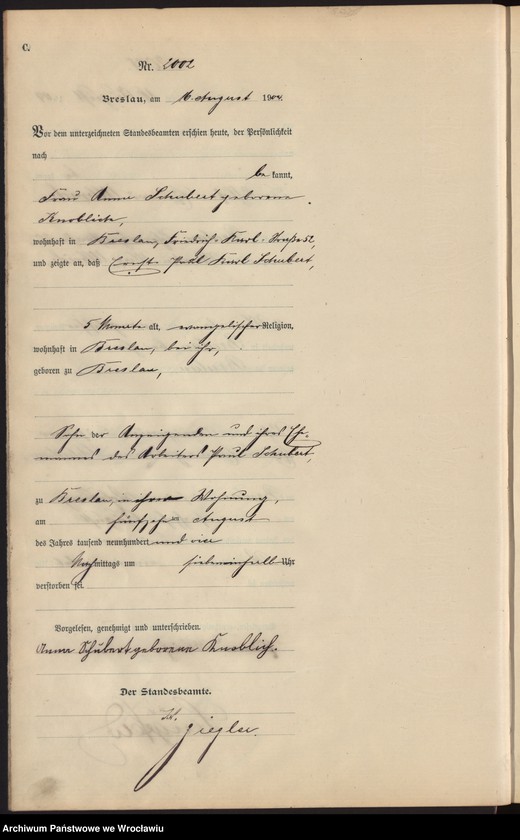 C.
Nr. 2002
Breslau, am 16. August 1904.
Vor dem unterzeichneten Standesbeamten erschien heute, der Persönlichkeit
nach
be kannt,
Frau Anna Schubert geborene
Knoblich,
wohnhaft in Breslau, Friedrich-Karl-Straße 52,
und zeigte an, daß Ernst Paul Karl Schubert,
5 Monate alt, evangelischer Religion,
wohnhaft in Breslau, bei ihr,
geboren zu Breslau,
Sohn der Anzeigenden und ihres Ehe-
mannes des Arbeiters Paul Schubert,
zu Breslau, in ihrer Wohnung,
am fünfzehnten August
des Jahres tausend neunhundert und vier
Nachmittags um sieben einhalb Uhr
verstorben sei.
Vorgelesen, genehmigt und unterschrieben.
Anna Schubert geborene Knoblich.
Der Standesbeamte.
Ziegler.
Archiwum Państwowe we Wrocławiu